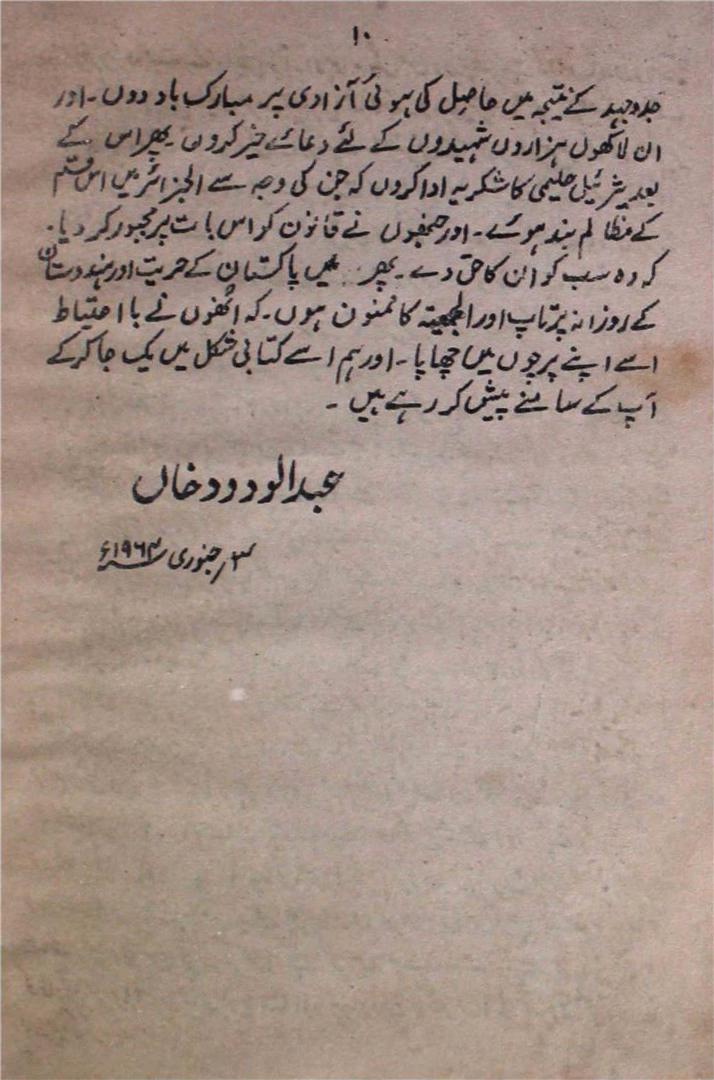 ۱۰
جدوجہد کے نتیجہ میں حاصل کی ہوئی آزادی پر مبارک باد دوں۔ اور
ان لاکھوں ہزاروں شہیدوں کے لئے دعائے خیر کروں۔ پھر اس کے
بعد جلیمی کا شکریہ ادا کروں کہ جن کی وجہ سے الجزائر میں اس قسم
کے مظالم بند ہوئے۔ اور جنھوں نے قانون کو اس بات پر مجبور کر دیا۔
کہ وہ سب کو ان کا حق دے۔ پھر میں پاکستان کے حریت اور ہندوستان
کے روزانہ پرتاپ اور الجمعیتہ کا ممنون ہوں۔ کہ انھوں نے با احتیاط
اسے اپنے پرچوں میں چھاپا۔ اور ہم اسے کتابی شکل میں یک جا کر کے
آپ کے سامنے پیش کر رہے ہیں۔
عبدالودود خاں
جنوری